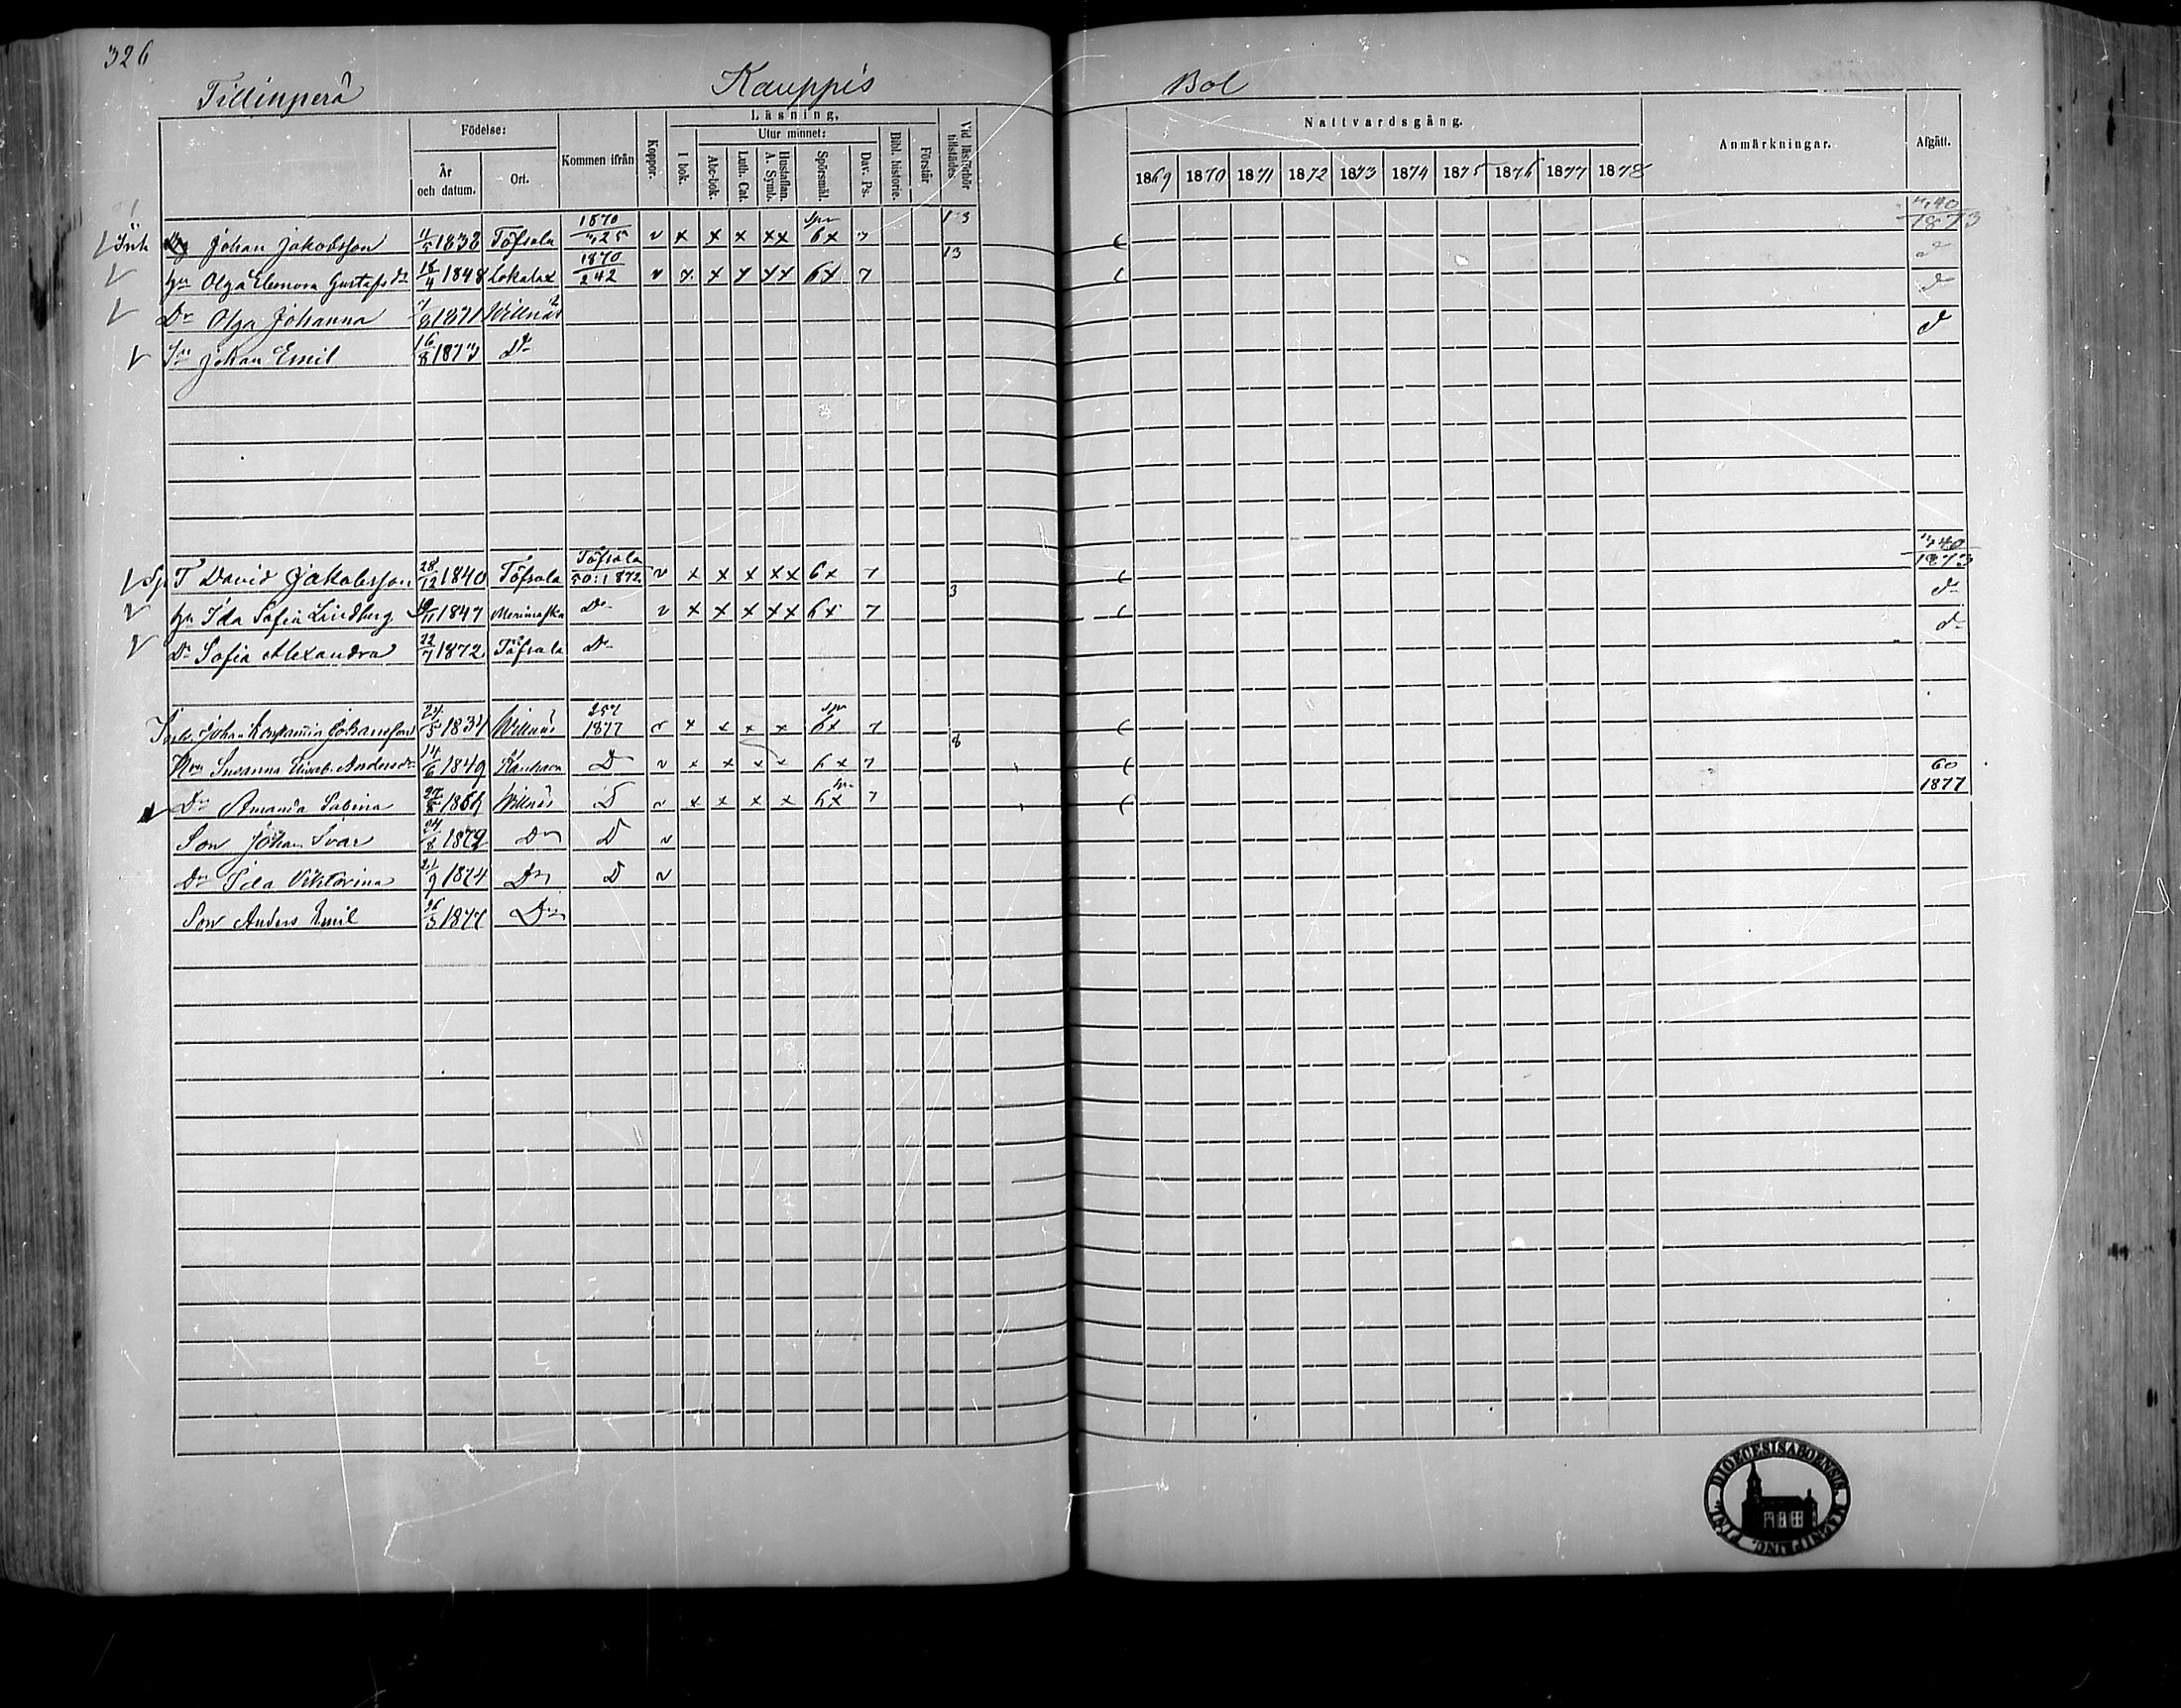 326
Tillinperä Kauppis Bol
Födelse: År och datum. Ort. Kommen ifrån Koppor. Läsning. I bok. Utur minnet: Abc-bok. Luth. Cat. Hustaflan. A. Symb. Spörsmål. Dav. Ps. Bibl. historie. Förstår Vid läsförhör tillstädes Nattvardsgång. 1869 1870 1871 1872 1873 1874 1875 1876 1877 1878 Anmärkningar. Afgått.
Inh Johan Jakobsson 1/5 1838 Töfsala 1870 25 v x x x xx 6x 7 13 40 1873
hu Olga Elenora Gustafsdr 18/4 1848 Lokalax 1870 242 v x x x xx 6x 7 13 d
Dr Olga Johanna 1871 Willnäs d
Sn Johan Emil 16/8 1873 Do d
T David Jakobsson 28/12 1840 Töfsala Töfsala 50:1872 v x x x xx 6x 7 40 1873
hu Ida Sofia Lindberg 1847 Merimasku Do v x x x xx 6x 7 3 do
Dr Sofia Alexandra 22/7 1872 Töfsala Do do
Inh. Johan Benjamin Johansson 24/5 1834 Willnäs 257 1877 v x x x x 6x 7
Susanna Elisab. Andersdr 14/6 1849 D v x x x x 6x 7 8
Dr Amanda Sabina 27/8 Willnäs D v x x x x 6x 7 60 1877
Son Johan Ivar 24/8 1872 Do D v
Dr Ida Viktorina 21/9 1874 Do D v
Son Anders Emil 26/3 1877 Do
DIOECESIS ABOENSIS